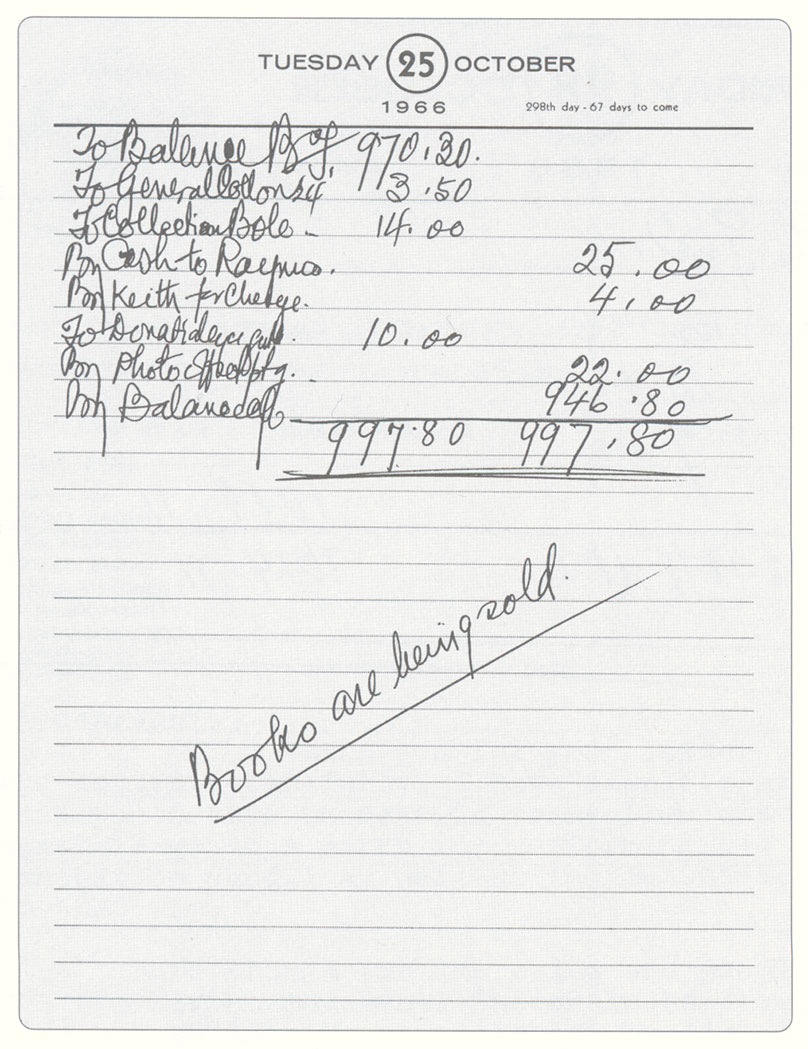 TUESDAY 25 OCTOBER
1966 298th day - 67 days to come
To Balance B/f 970.30.
To General Coll on 24 3.50
To Collection Bole - 14.00
By Cash to Rayrama. 25.00
By Keith for Chelge. 4.00
To Donat 10.00
By Photo 22.00
By Balance c/f 946.80
997.80 997.80
Books are being sold.